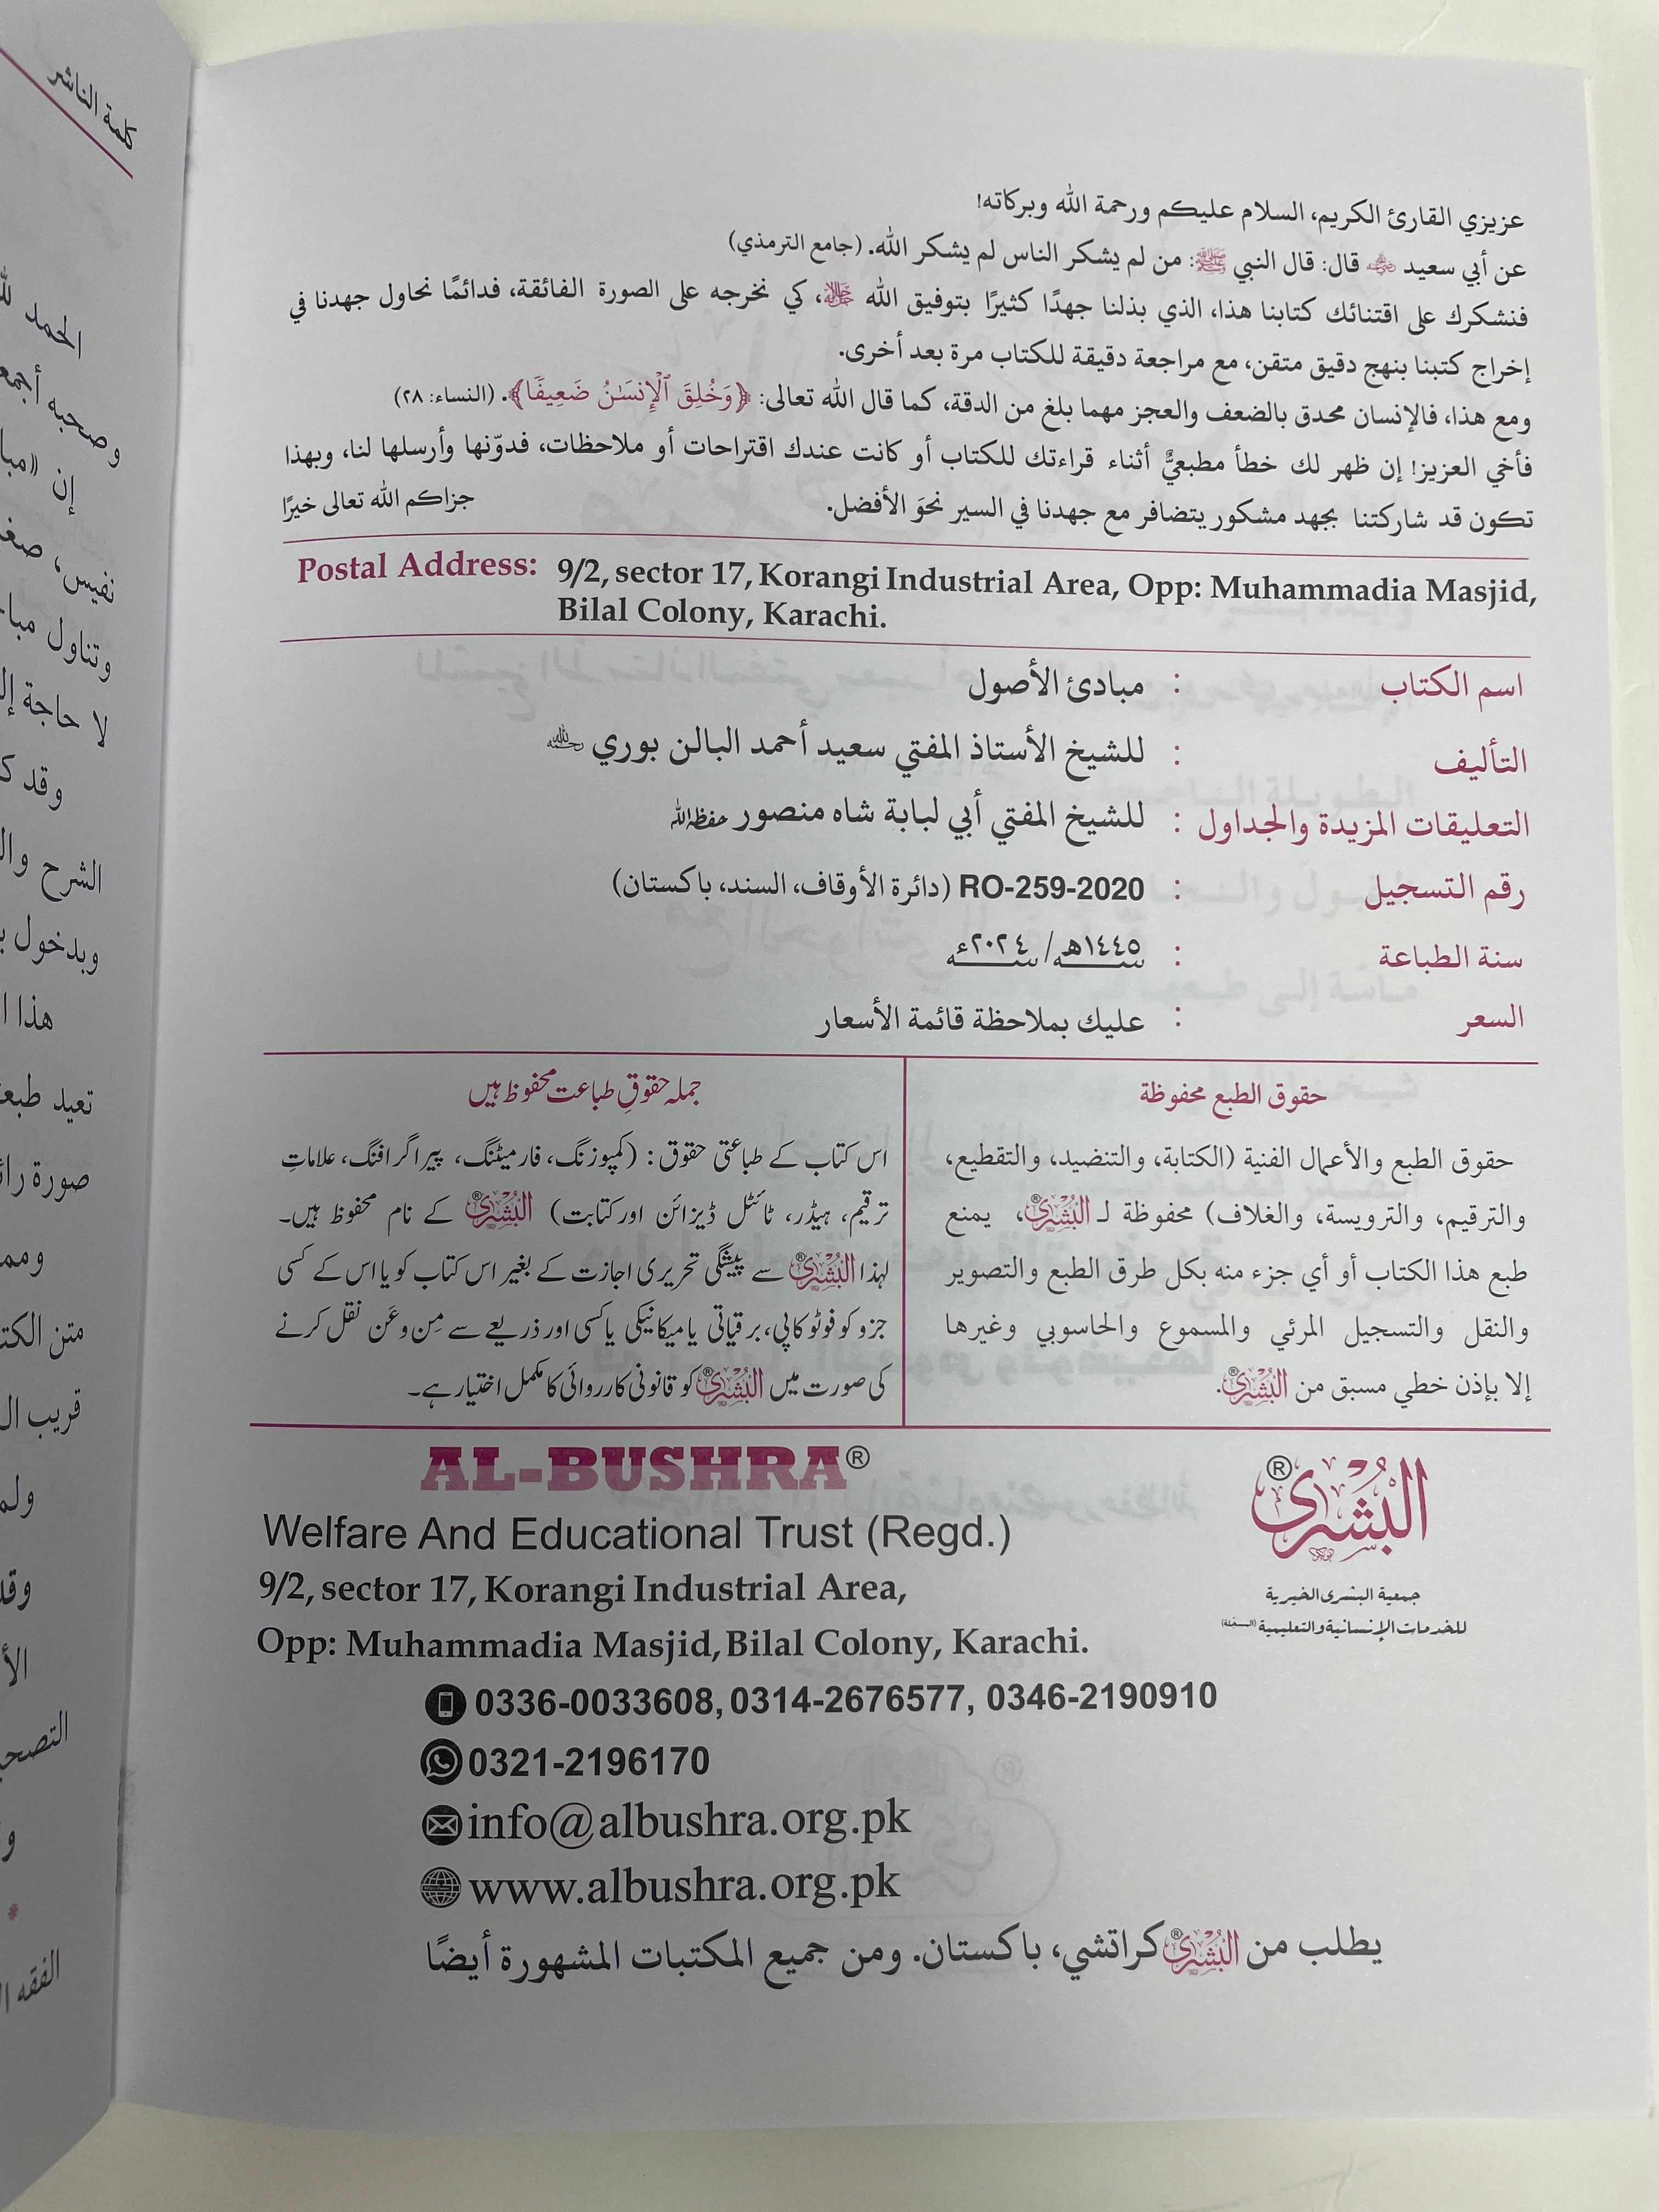 عزيزي القارئ الكريم، السلام عليكم ورحمة الله وبركاته!
عن أبي سعيد ﷺ قال: قال النبي ﷺ: من لم يشكر الناس لم يشكر الله. (جامع الترمذي)
فنشكرك على اقتنائك كتابنا هذا، الذي بذلنا جهدًا كثيرًا بتوفيق الله ﷻ، كي نخرجه على الصورة الفائقة، فدائمًا نحاول جهدنا في
إخراج كتبنا بنهج دقيق متقن، مع مراجعة دقيقة للكتاب مرة بعد أخرى.
ومع هذا، فالإنسان محدق بالضعف والعجز مهما بلغ من الدقة، كما قال الله تعالى: ﴿وَخُلِقَ ٱلْإِنسَـٰنُ ضَعِيفًا﴾. (النساء: ٢٨)
فأخي العزيز! إن ظهر لك خطأ مطبعيٌّ أثناء قراءتك للكتاب أو كانت عندك اقتراحات أو ملاحظات، فدوّنها وأرسلها لنا، وبهذا
تكون قد شاركتنا بجهد مشكور يتضافر مع جهدنا في السير نحوَ الأفضل. جزاكم الله تعالى خيرًا
Postal Address: 9/2, sector 17, Korangi Industrial Area, Opp: Muhammadia Masjid,
Bilal Colony, Karachi.
اسم الكتاب : مبادئ الأصول
التأليف : للشيخ الأستاذ المفتي سعيد أحمد البالن بوري رحمه الله
التعليقات المزيدة والجداول : للشيخ المفتي أبي لبابة شاه منصور حفظه الله
رقم التسجيل : RO-259-2020 (دائرة الأوقاف، السند، باكستان)
سنة الطباعة : ١٤٤٥هـ/ ٢٠٢٤ء
السعر : عليك بملاحظة قائمة الأسعار
حقوق الطبع محفوظة
حقوق الطبع والأعمال الفنية (الكتابة، والتنضيد، والتقطيع،
والترقيم، والترويسة، والغلاف) محفوظة لـ البُشرى®، يمنع
طبع هذا الكتاب أو أي جزء منه بكل طرق الطبع والتصوير
والنقل والتسجيل المرئي والمسموع والحاسوبي وغيرها
إلا بإذن خطي مسبق من البُشرى®.
جملہ حقوقِ طباعت محفوظ ہیں
اس کتاب کے طباعتی حقوق: (کمپوزنگ، فارمیٹنگ، پیراگرافنگ، علاماتِ
ترقیم، ہیڈر، ٹائٹل ڈیزائن اور کتابت) البُشرى® کے نام محفوظ ہیں۔
لہذا البُشرى® سے پیشگی تحریری اجازت کے بغیر اس کتاب کو یا اس کے کسی
جزو کو فوٹو کاپی، برقیاتی یا میکانیکی یا کسی اور ذریعے سے مِن وعَن نقل کرنے
کی صورت میں البُشرى® کو قانونی کارروائی کا مکمل اختیار ہے۔
AL-BUSHRA®
Welfare And Educational Trust (Regd.)
9/2, sector 17, Korangi Industrial Area,
Opp: Muhammadia Masjid, Bilal Colony, Karachi.
البُشرى®
جمعية البشرى الخيرية
للخدمات الإنسانية والتعليمية (المسجّلة)
0336-0033608, 0314-2676577, 0346-2190910
0321-2196170
info@albushra.org.pk
www.albushra.org.pk
يطلب من البُشرى® كراتشي، باكستان. ومن جميع المكتبات المشهورة أيضًا
كلمة الناشر